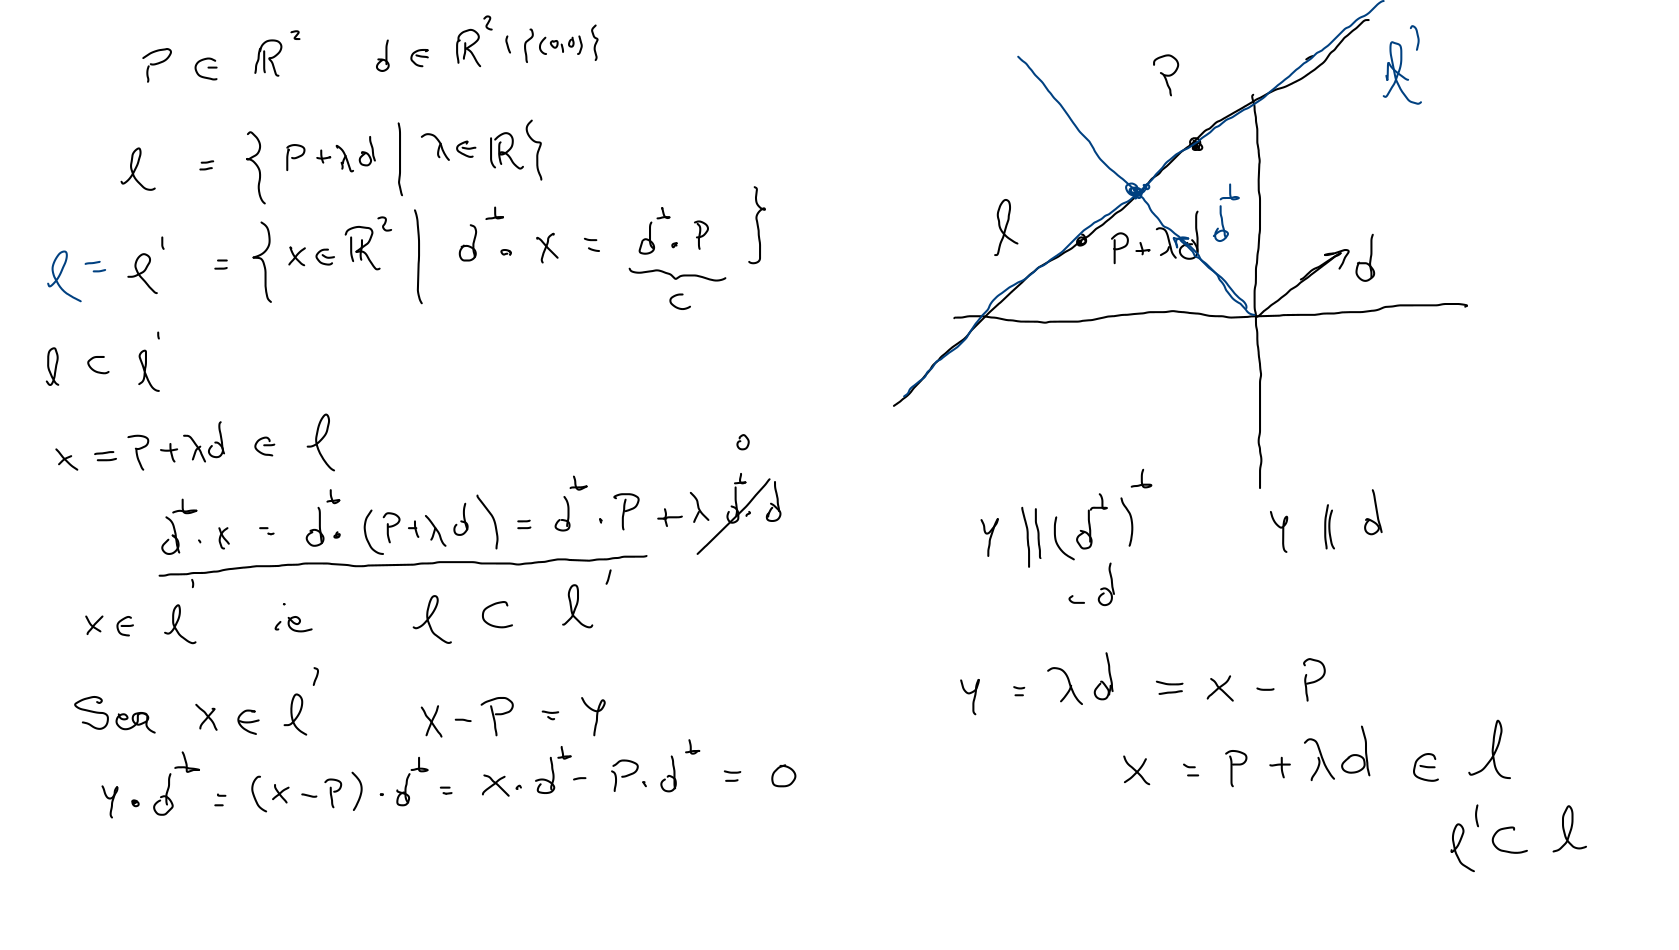 P ∈ ℝ² d ∈ ℝ² \ {(0,0)}
ℓ = { P + λd | λ ∈ ℝ }
ℓ = ℓ' = { x ∈ ℝ² | d^⊥ · x = d^⊥ · P }
c
ℓ ⊂ ℓ'
x = P + λd ∈ ℓ
0
d^⊥ · x = d^⊥ · (P + λd) = d^⊥ · P + λ d^⊥ · d
x ∈ ℓ' ie ℓ ⊂ ℓ'
Sea x ∈ ℓ' x - P = y
y · d^⊥ = (x - P) · d^⊥ = x · d^⊥ - P · d^⊥ = 0
P
ℓ'
ℓ
P + λd
d^⊥
d
y || (d^⊥)^⊥ y || d
-d
y = λd = x - P
x = P + λd ∈ ℓ
ℓ' ⊂ ℓ